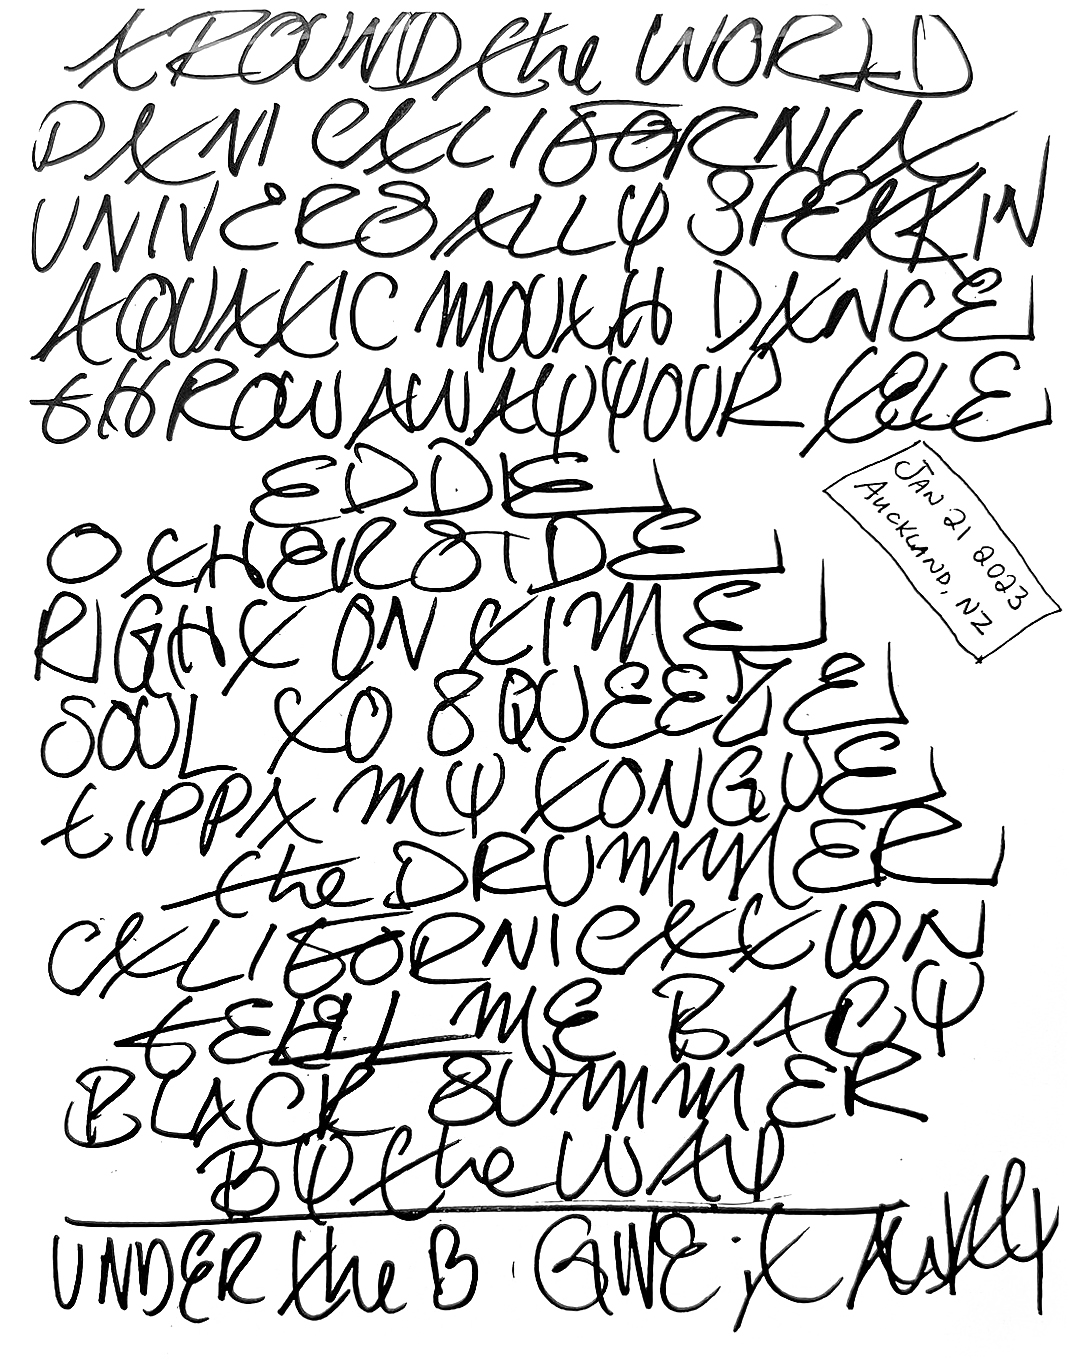 AROUND the WORLD
DANI CALIFORNIA
UNIVERSALLY SPEAKIN
AQUATIC MOUTH DANCE
tHROW AWAY YOUR TELE
EDDIE
JAN 21 2023
AUCKLAND, NZ
OTHERSIDE
RIGHT ON TIME
SOUL TO SQUEEZE
tIPPA MY TONGUE
the DRUMMER
CALIFORNICATION
tELL ME BABY
BLACK SUMMER
BY the WAY
UNDER the B . GIVE it AWAY